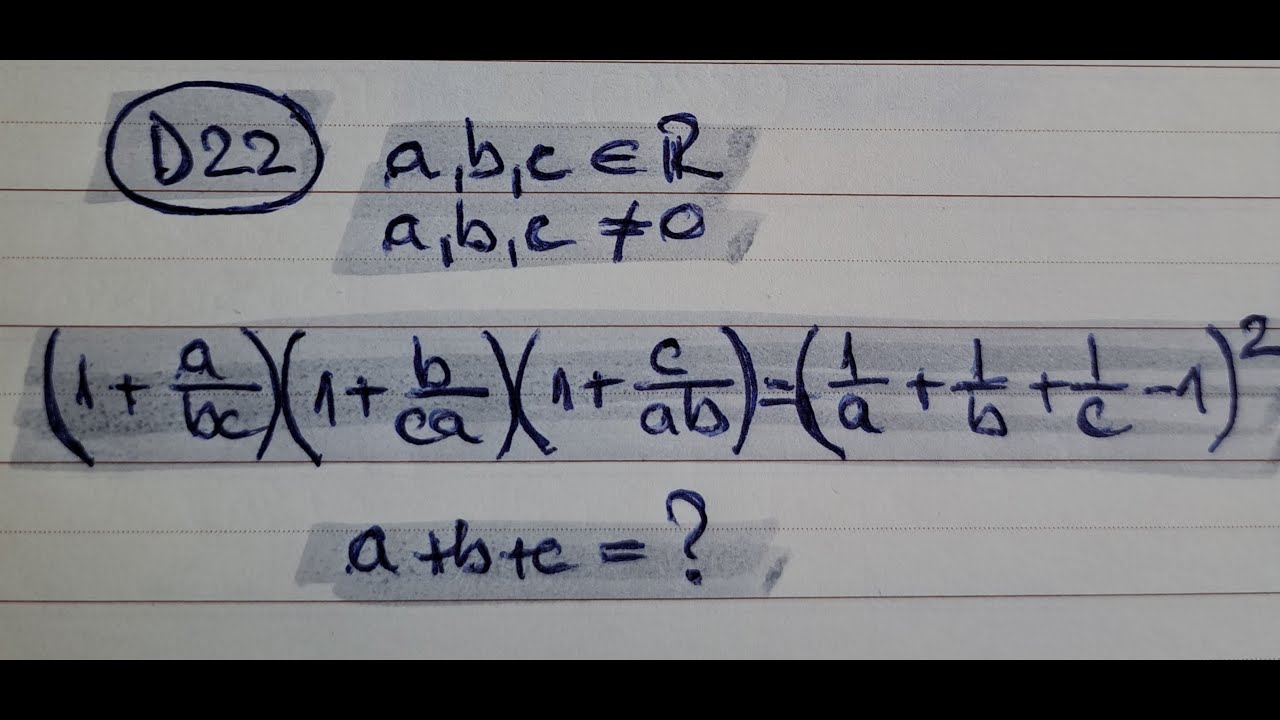 D22 a,b,c ∈ ℝ
a,b,c ≠ 0
(1 + a/bc)(1 + b/ca)(1 + c/ab) = (1/a + 1/b + 1/c - 1)²
a + b + c = ?